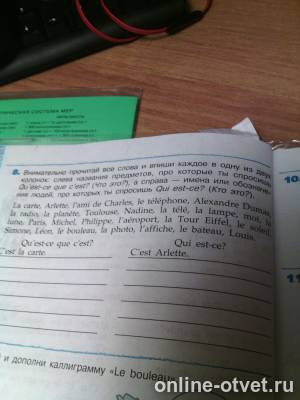 8. Внимательно прочитай все слова и впиши каждое в одну из двух
колонок: слева названия предметов, про которые ты спросишь
Qu'est-ce que c'est? (Что это?), а справа — имена или обозначе-
ния людей, про которых ты спросишь Qui est-ce? (Кто это?).
La carte, Arlette, l'ami de Charles, le téléphone, Alexandre Dumas,
la radio, la planète, Toulouse, Nadine, la télé, la lampe, moi, la
lune, Paris, Michel, Philippe, l'aéroport, la Tour Eiffel, le soleil,
Simone, Léon, le bouleau, la photo, l'affiche, le bateau, Louis.
Qu'est-ce que c'est? Qui est-ce?
C'est la carte. C'est Arlette.
10.
11
и дополни каллиграмму «Le bouleau»
online-otvet.ru